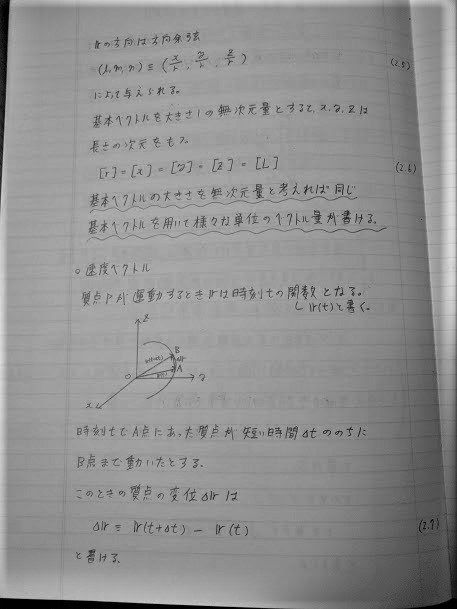 rの方向は方向余弦
(l, m, n) ≡ (x/r, y/r, z/r) (2.5)
によって与えられる。
基本ベクトルを大きさ1の無次元量とすると、x, y, zは
長さの次元をもつ。
[r] = [x] = [y] = [z] = [L] (2.6)
基本ベクトルの大きさを無次元量と考えれば同じ
基本ベクトルを用いて様々な単位のベクトル量が書ける。
○速度ベクトル
質点Pが運動するときrは時刻tの関数となる。
r(t)と書く。
z
B
Δr
A
O
y
x
時刻tでA点にあった質点が短い時間Δtののちに
B点まで動いたとする。
このときの質点の変位Δrは
Δr ≡ r(t+Δt) − r(t) (2.7)
と書ける。